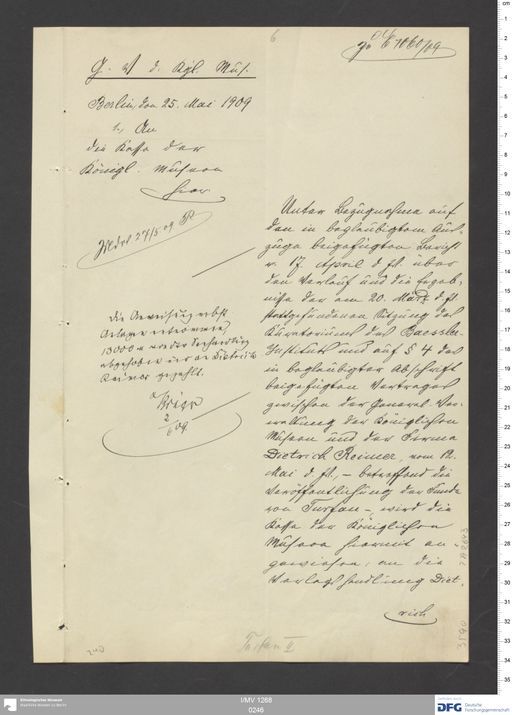 6
zu E 1060/09
G. V. d. Kgl. Mus.
Berlin, den 25. Mai 1909
1., An
die Kasse der
Königl. Museen
hier
27/5 09
Die Anweisung nebst
Anlagen entnommen,
13000 M
abgehoben
Reimer gezahlt.
2/6 09
Unter Bezugnahme auf
den in beglaubigtem Aus-
zuge beigefügten Bericht
v. 17. April d. Js. über
den Verlauf und die Ergeb-
nisse der am 20. März d. Js.
stattgefundenen Sitzung des
Kuratoriums des Baessler-
Instituts und auf § 4 des
in beglaubigter Abschrift
beigefügten Vertrages
zwischen der General-Ver-
waltung der Königlichen
Museen und der Firma
Dietrich Reimer, vom 12.
Mai d. Js., – betreffend die
Veröffentlichung der Funde
von Turfan – wird die
Kasse der Königlichen
Museen hiermit an-
gewiesen, an die
Verlagshandlung Diet-
rich
Turfan II
3590
Ethnologisches Museum
Staatliche Museen zu Berlin
I/MV 1268
0246
DFG Deutsche
Forschungsgemeinschaft